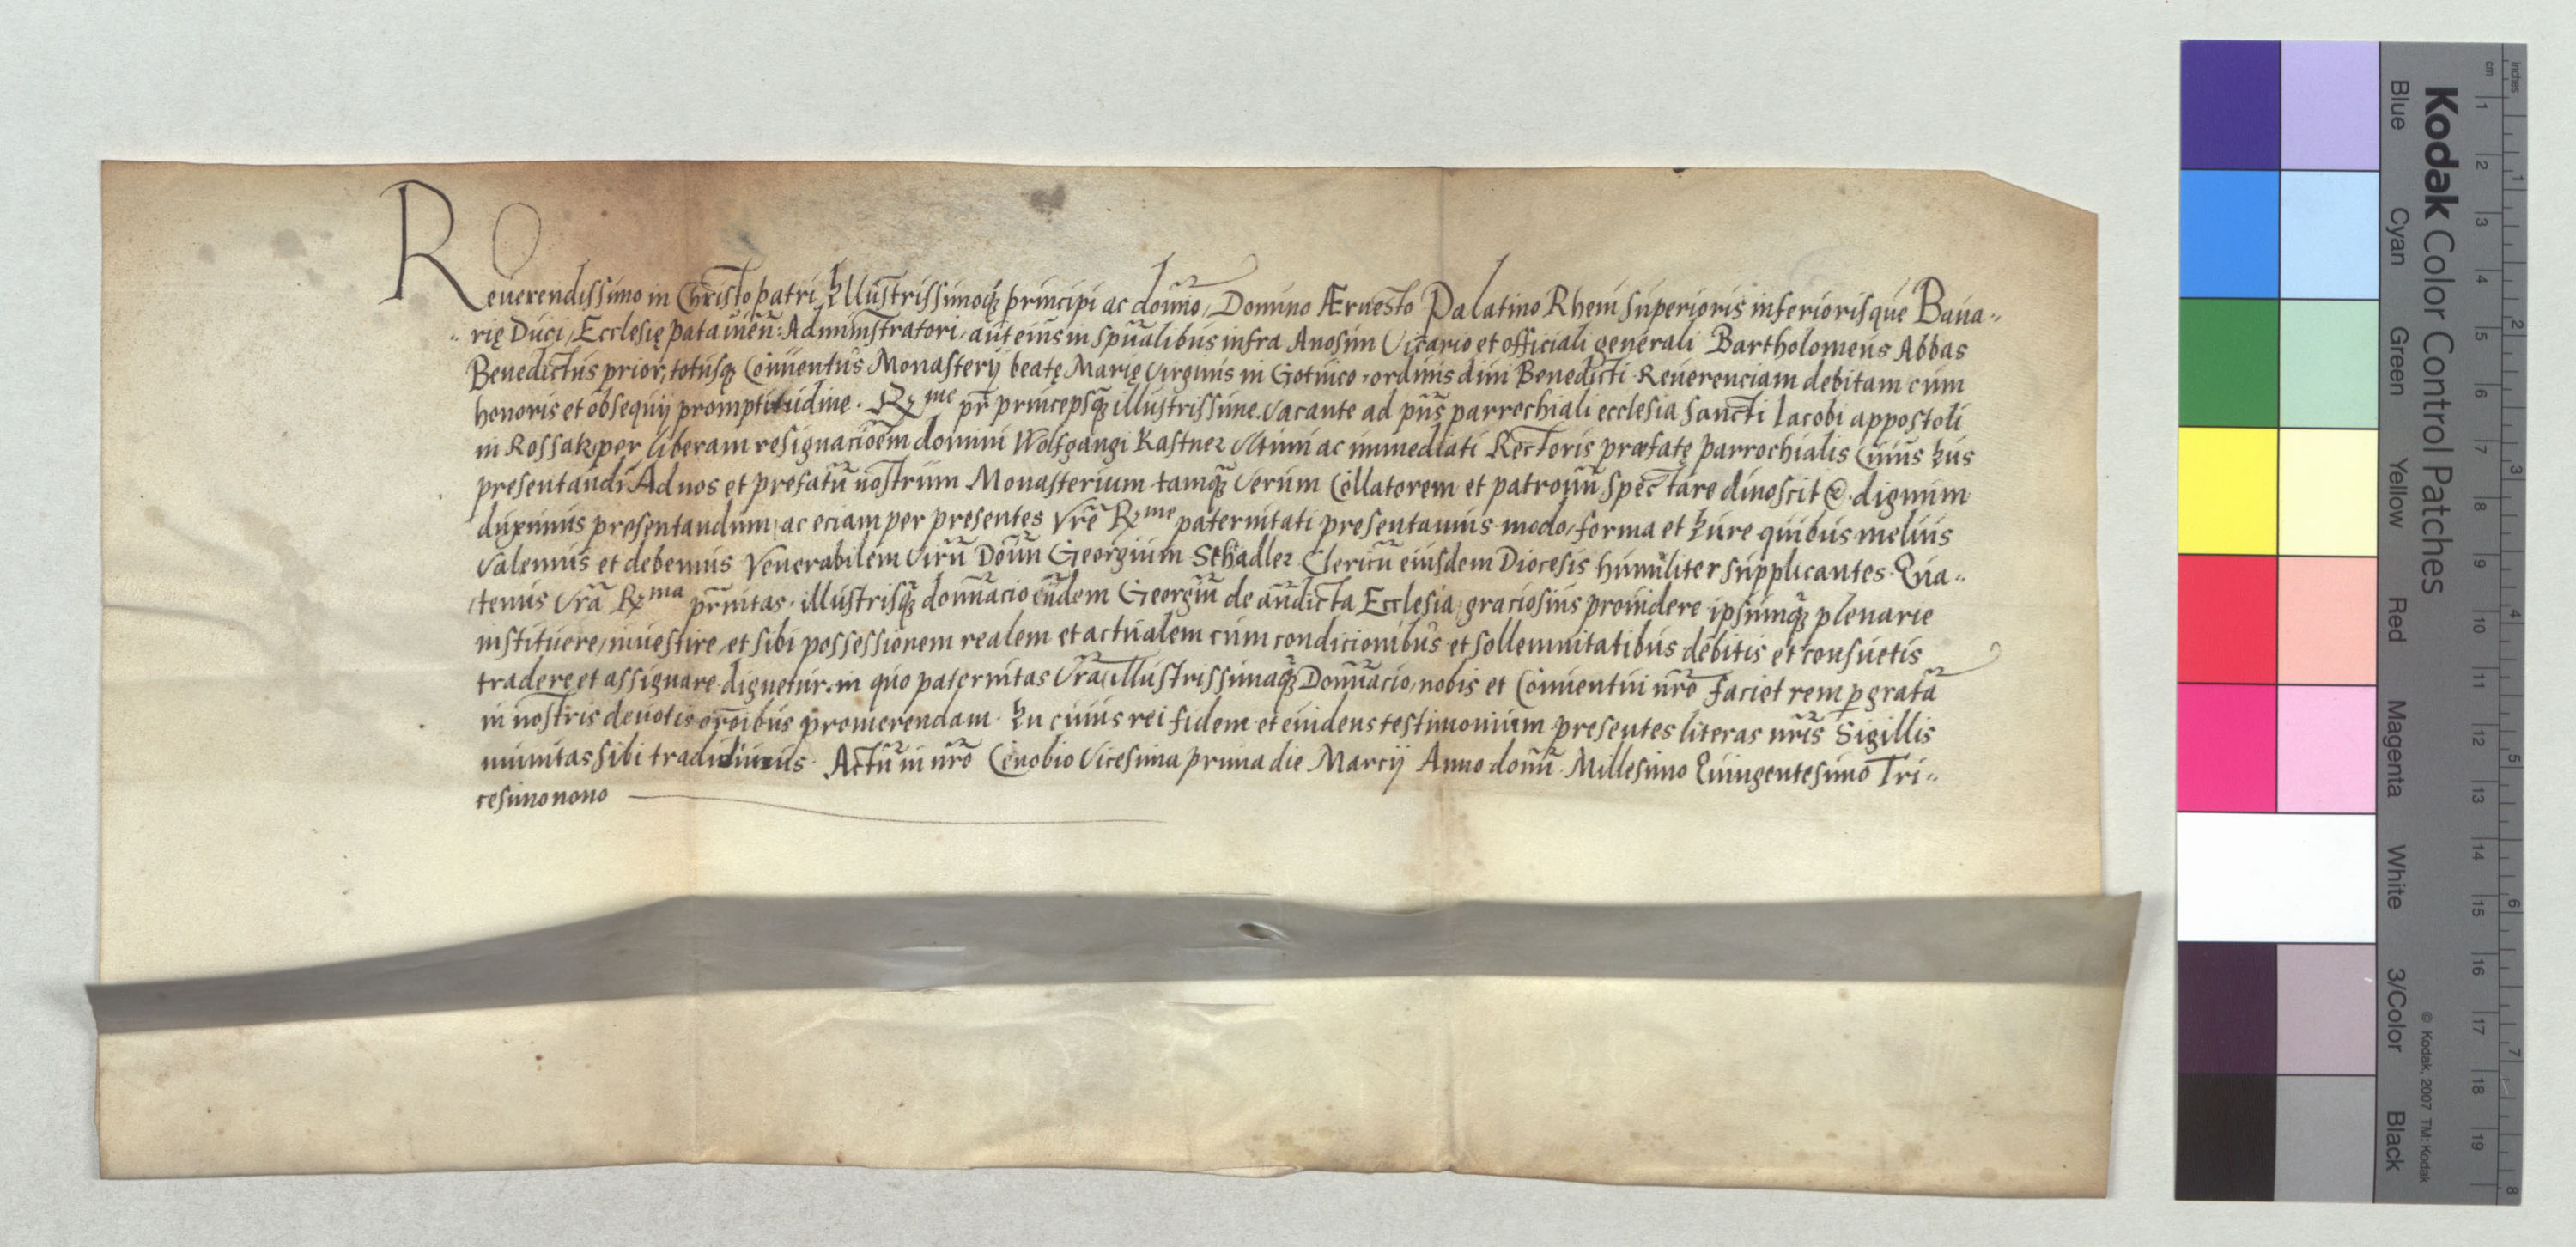 Reverendissimo in Christo patri Illustrissimoq́ꝫ principi ac domino, Domino Ærnesto Palatino Rheni Superioris inferiorisque Baua〃
〃rię Duci, Ecclesię patauieñ: Administratori, aut eius in spũalibus infra Anosim Vicario et officiali generali Bartholomeus Abbas
Benedictus prior, totusqꝫ Conuentus Monasterij beatę Marię virginis in Gotnico, ordinis diui Benedicti. Reuerenciam debitam cum
honoris et obsequij promptitudine. Rme pr̃ princepsqꝫ illustrissime. Vacante ad pñs parrochiali ecclesia sancti Iacobi appostoli
in Rossak per liberam resignacioẽm domini Wolfgangi Kastner vltimi ac immediati Rectoris præfatę parrochialis Cuius Ius
presentandi Ad nos et prefatũ nostrum Monasterium tamqꝫ verum Collatorem et patronũ spectare dinoscit(ur). dignum
duximus presentandum, ac eciam per presentes Vrẽ Rme paternitati presentamus modo, forma et Iure quibus melius
valemus et debemus Venerabilem virũ Doñm Georgium Schadler Clericũ eiusdem Diocesis humiliter supplicantes. Qua〃
tenus Vrã Rma pr̃nitas, illustrisqꝫ domĩnacio eũdem Georgiũ de añdicta Ecclesia, graciosius prouidere ipsumqꝫ plenarie
instituere, inuestire, et sibi possessionem realem et actualem cum condicionibus et sollemnitatibus debitis et consuetis
tradere et assignare dignetur. in quo paternitas Vrã Illustrissimaqꝫ Domĩnacio, nobis et Conuentui nrõ faciet rem pgratã
in nostris deuotis orõibus promerendam. In cuius rei fidem et euidens testimonium presentes literas nrĩs Sigillis
munitas sibi tradidimus. Actũ in nrõ Cenobio Vicesima prima die Marcij Anno domĩ Millesimo Quingentesimo Tri〃
cesimo nono
Kodak Color Control Patches
Blue Cyan Green Yellow Red Magenta White 3/Color Black
© Kodak, 2007 TM: Kodak
inches 1 2 3 4 5 6 7 8
cm 1 2 3 4 5 6 7 8 9 10 11 12 13 14 15 16 17 18 19